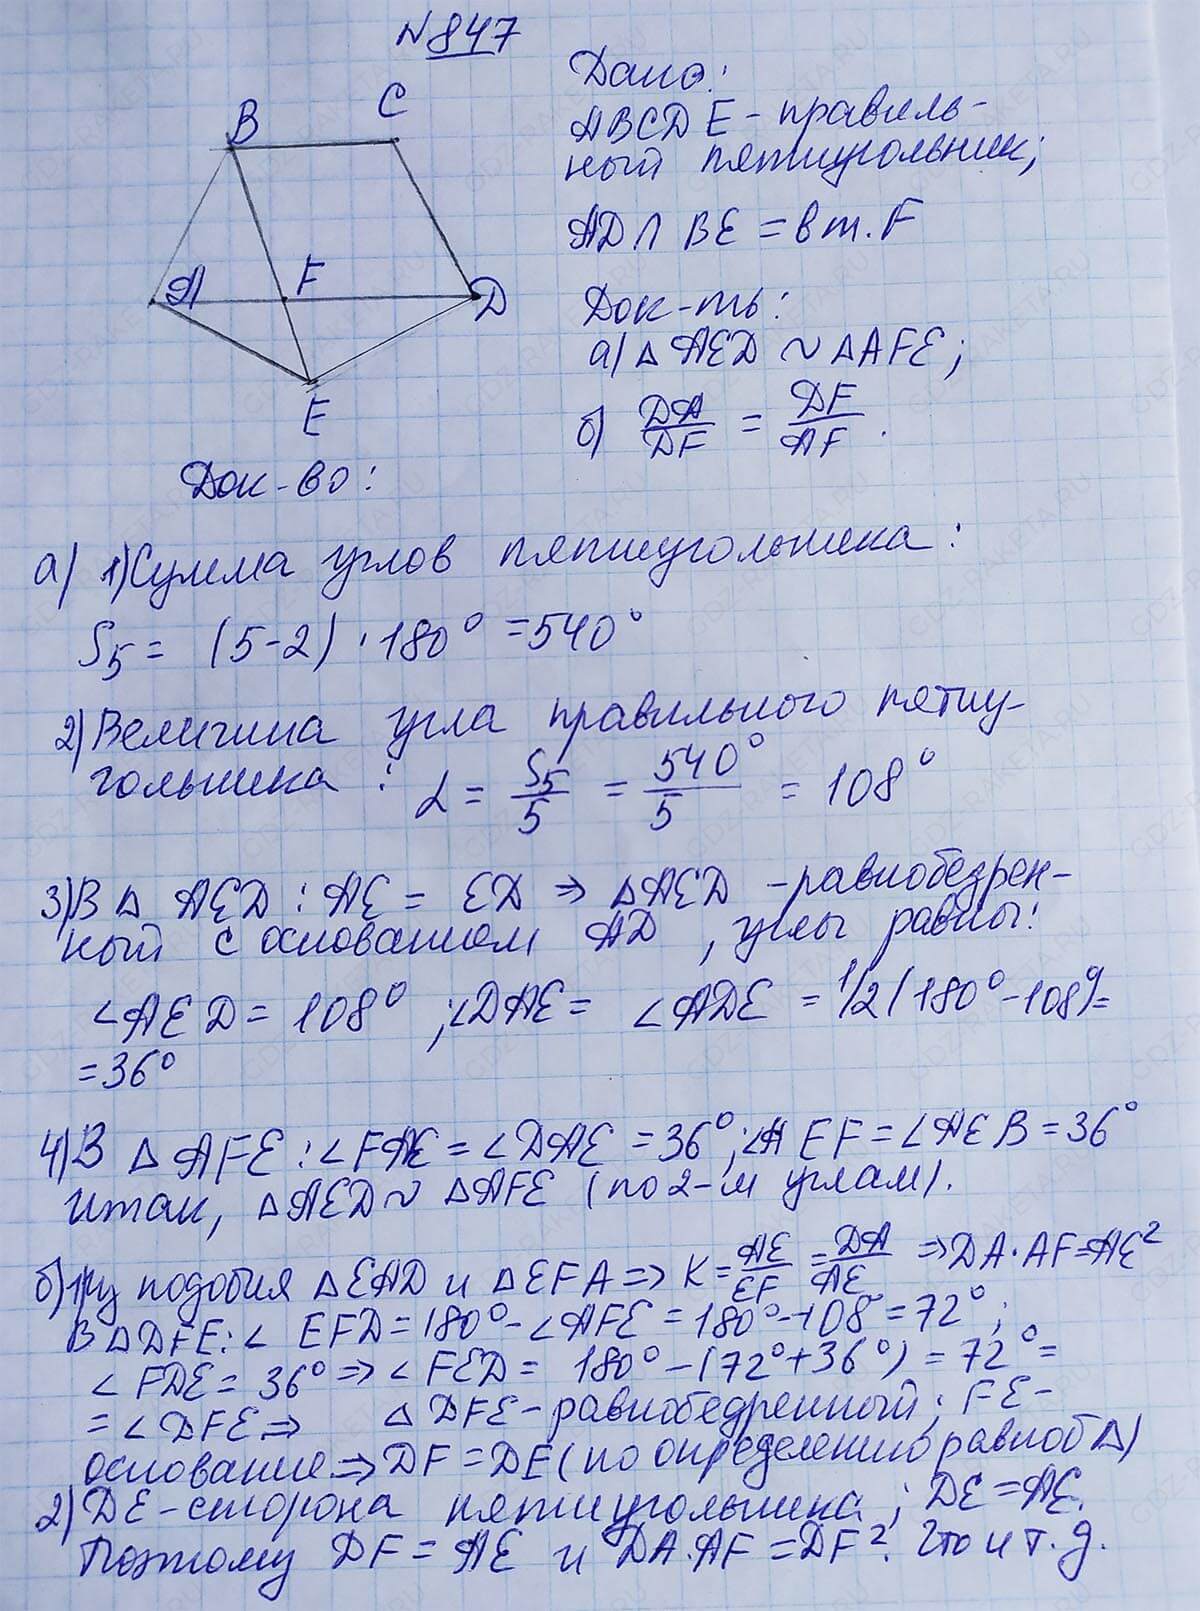 №847
B C
A F D
E
Дано:
ABCDE - правиль-
ный пятиугольник;
AD ∩ BE = в т. F
Док-ть:
а) △ AED ~ △AFE;
б) DA/DF = DF/AF.
Док-во:
а) 1) Сумма углов пятиугольника:
S₅ = (5-2) · 180° = 540°
2) Величина угла правильного пятиу-
гольника: α = S₅/5 = 540°/5 = 108°
3) В △ AED: AE = ED ⇒ △AED -равнобедрен-
ный с основанием AD, углы равны:
∠AED = 108°; ∠DAE = ∠ADE = 1/2(180°-108°)=
=36°
4) В △ AFE: ∠FAE = ∠DAE = 36°; ∠AEF = ∠AEB = 36°
Итак, △AED ~ △AFE (по 2-м углам).
б) 1) Из подобия △EAD и △EFA ⇒ K = AE/EF = DA/AE ⇒ DA·AF=AE²
В △DFE: ∠ EFD = 180° - ∠AFE = 180° - 108° = 72°;
∠ FDE = 36° ⇒ ∠ FED = 180° - (72° + 36°) = 72° =
= ∠DFE ⇒ △ DFE - равнобедренный; FE -
основание ⇒ DF = DE (по определению равноб △)
2) DE - сторона пятиугольника; DE = AE.
Поэтому DF = AE и DA·AF = DF². Что и т. д.
GDZ-RAKETA.RU